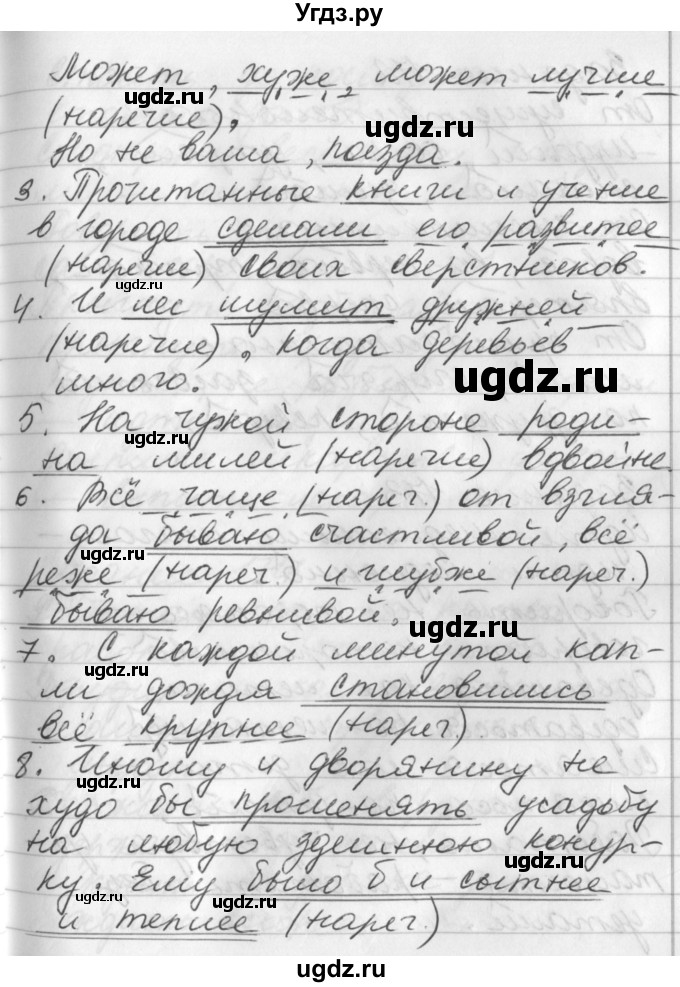 Угдз.ру
Может, хуже, может лучше
(наречие),
ugdz.ru
ugdz.ru
Но не ваша, поезда.
3. Прочитанные книги и учение
в городе сделали его развитее
(наречие) своих сверстников.
ugdz.ru
4. И лес шумит дружней
(наречие), когда деревьев
много.
ugdz.ru
5. На чужой стороне роди-
ugdz.ru
на милей (наречие) вдвойне
6. Всё чаще (нареч.) от взгля-
да бываю счастливой, всё
ugdz.ru
реже (нареч.) и глубже (нареч.)
бываю ревнивой.
ugdz.ru
7. С каждой минутой кап-
ли дождя становились
ugdz.ru
всё крупнее (нареч.)
8. Иному и дворянину не
худо бы променять усадьбу
ugdz.ru
на любую здешнюю конур-
ugdz.ru
ку. Ему было б и сытнее
и теплее (нареч.)
ugdz.ru
ugdz.ru